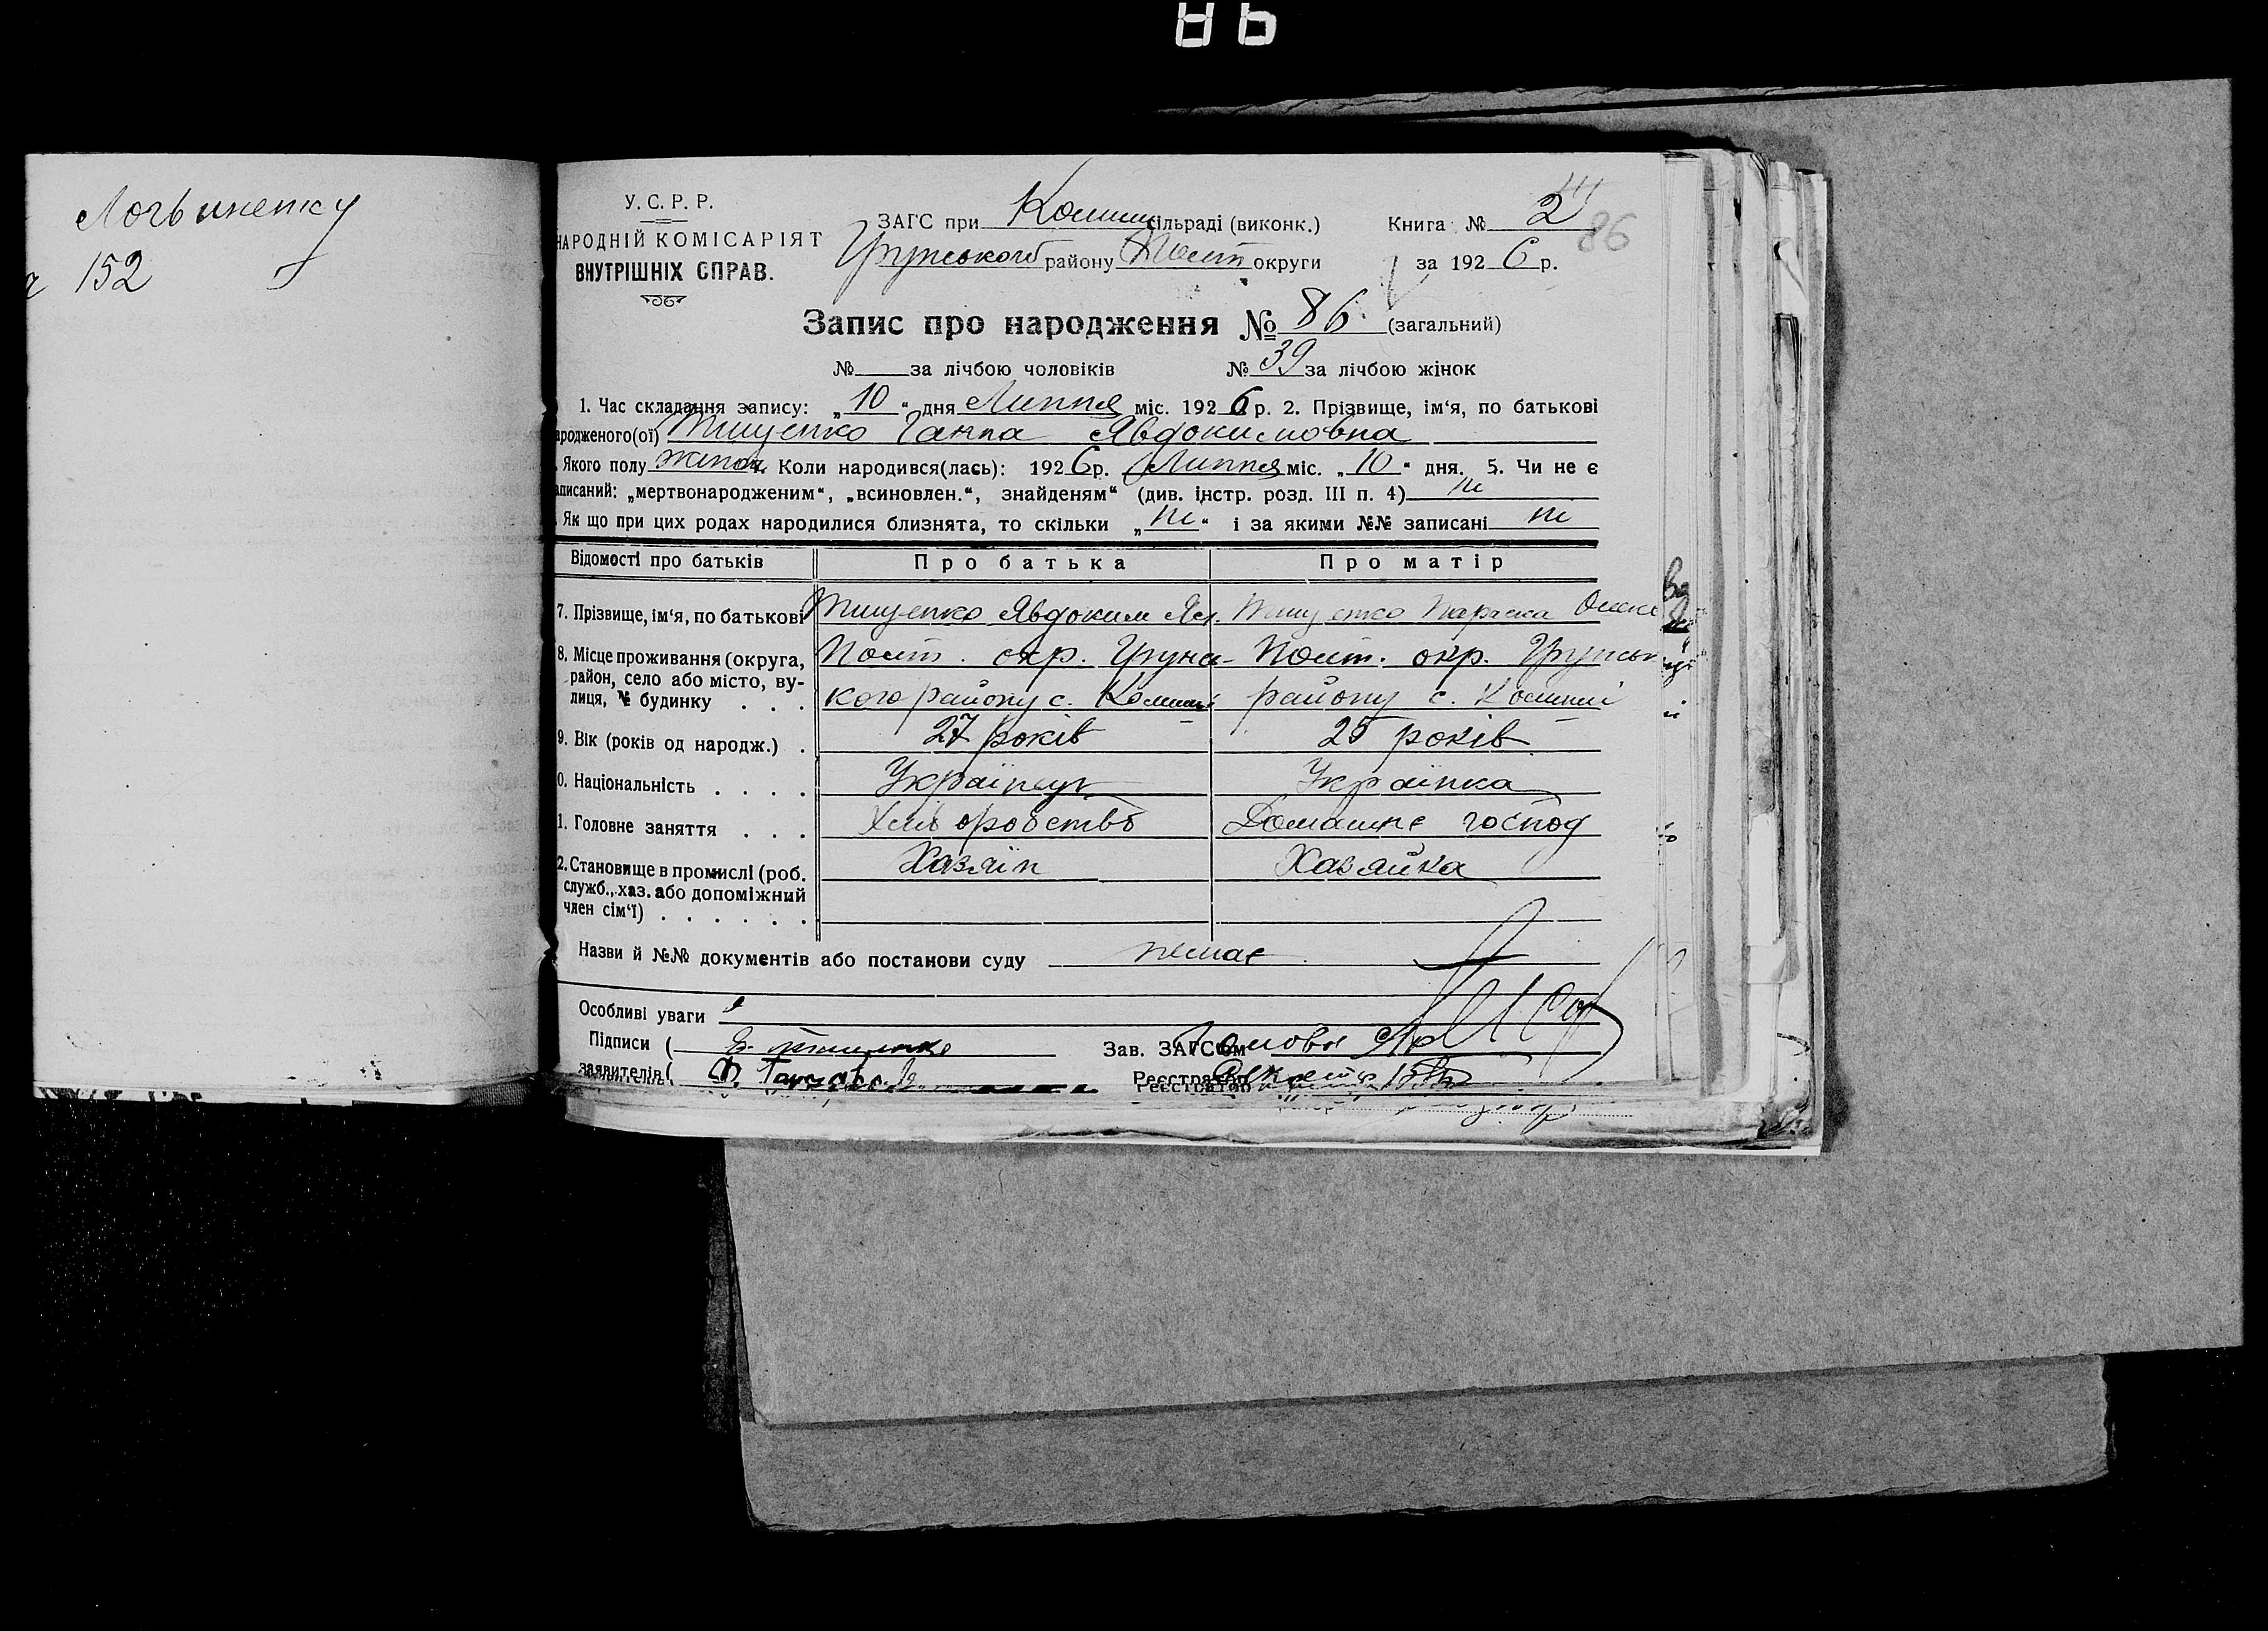 86
Логвиненку
152
У.С.Р.Р.
НАРОДНІЙ КОМІСАРІЯТ
ВНУТРІШНІХ СПРАВ.
ЗАГС при Комиш сільраді (виконк.) Книга № 2
86
Грунського району Полт округи за 1926 р.
Запис про народження № 86 (загальний)
№ за лічбою чоловіків № 39 за лічбою жінок
1. Час складання запису: „10" дня Липня міс. 1926 р. 2. Прізвище, ім'я, по батькові
ародженого(ої) Тищенко Ганна Явдокимовна
Якого полу жіноч. Коли народився(лась): 1926 р. Липня міс. „10" дня. 5. Чи не є
аписаний: „мертвонародженим", „всиновлен.", знайденям" (див. інстр. розд. III п. 4) ні
Як що при цих родах народилися близнята, то скільки „ні" і за якими №№ записані ні
Відомості про батьків Про батька Про матір
7. Прізвище, ім'я, по батькові Тищенко Явдоким Тищенко Параска
8. Місце проживання (округа, район, село або місто, вулиця, № будинку . . .
Полт. окр. Грунс-
кого району с. Комиші
Полт. окр. Грунськ
району с. Комиші
9. Вік (років од народж.) . 27 років 25 років
0. Національність . . . . Українець Українка
1. Головне заняття . . . Хліборобство Домашнє господ
2. Становище в промислі (роб. Хазяїн Хазяйка
служб., хаз. або допоміжний
член сім'ї) . . . . . .
Назви й №№ документів або постанови суду немає
Особливі уваги
Підписи ( Зав. ЗАГС'ом
заявителів ( Реєстратор